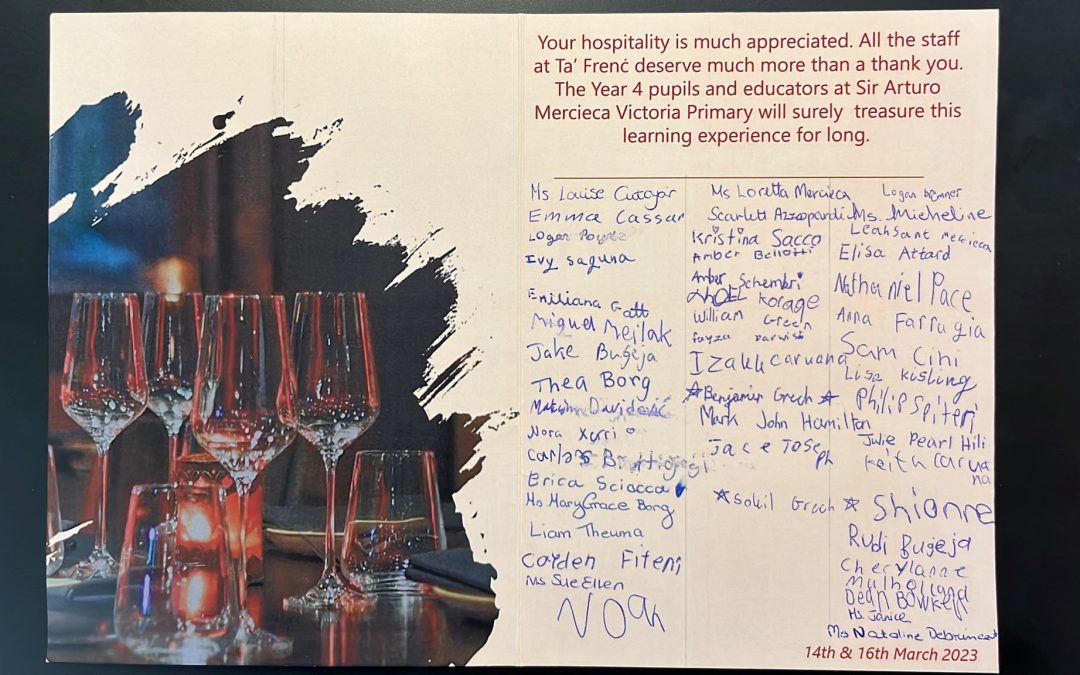 Your hospitality is much appreciated. All the staff
at Ta' Frenċ deserve much more than a thank you.
The Year 4 pupils and educators at Sir Arturo
Mercieca Victoria Primary will surely treasure this
learning experience for long.
Ms Louise Cutajar
Emma Cassar
Logan
Ivy saguna
Emiliana Gatt
Miguel Mejlak
Jake Bugeja
Thea Borg
Davidović
Nora Xerri
Carlos
Erica Sciacca
Ms MaryGrace Borg
Liam Theuma
Cayden Fiteni
Ms SueEllen
Noah
Ms Loretta Mercieca
Scarlett Azzopardi
Kristina Sacco
Amber Bellotti
Amber Schembri
Korage
William Green
fayza Darwish
Izakk caruana
Benjamin Grech
Mark John Hamilton
Jace Joseph
Soleil Grech
Logan
Ms. Micheline
Leah Sant Mercieca
Elisa Attard
Nathaniel Pace
Anna Farrugia
Sam Cini
Lisa Kisling
Philip Spiteri
Julie Pearl Hili
Keith Carua
na
Shianne
Rudi Bugeja
Cherylanne
Mulholland
Dean Bowker
Ms Janice
Ms Nataline Debrincat
14th & 16th March 2023